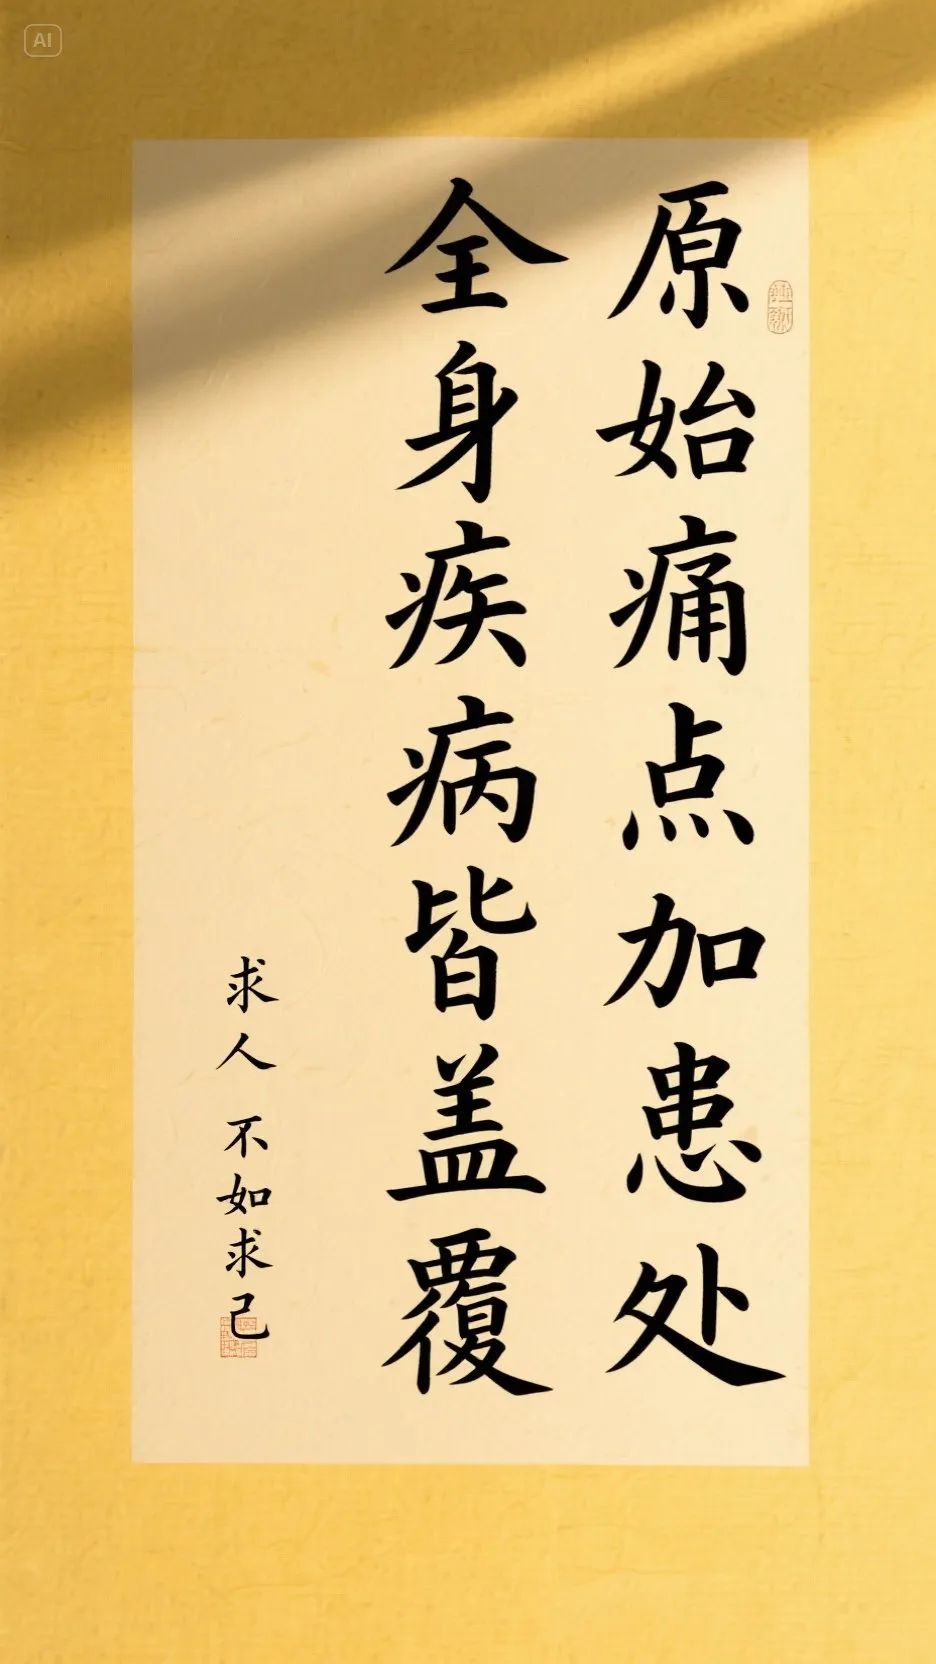 AI
原始痛点加患处
全身疾病皆盖覆
求人 不如求己